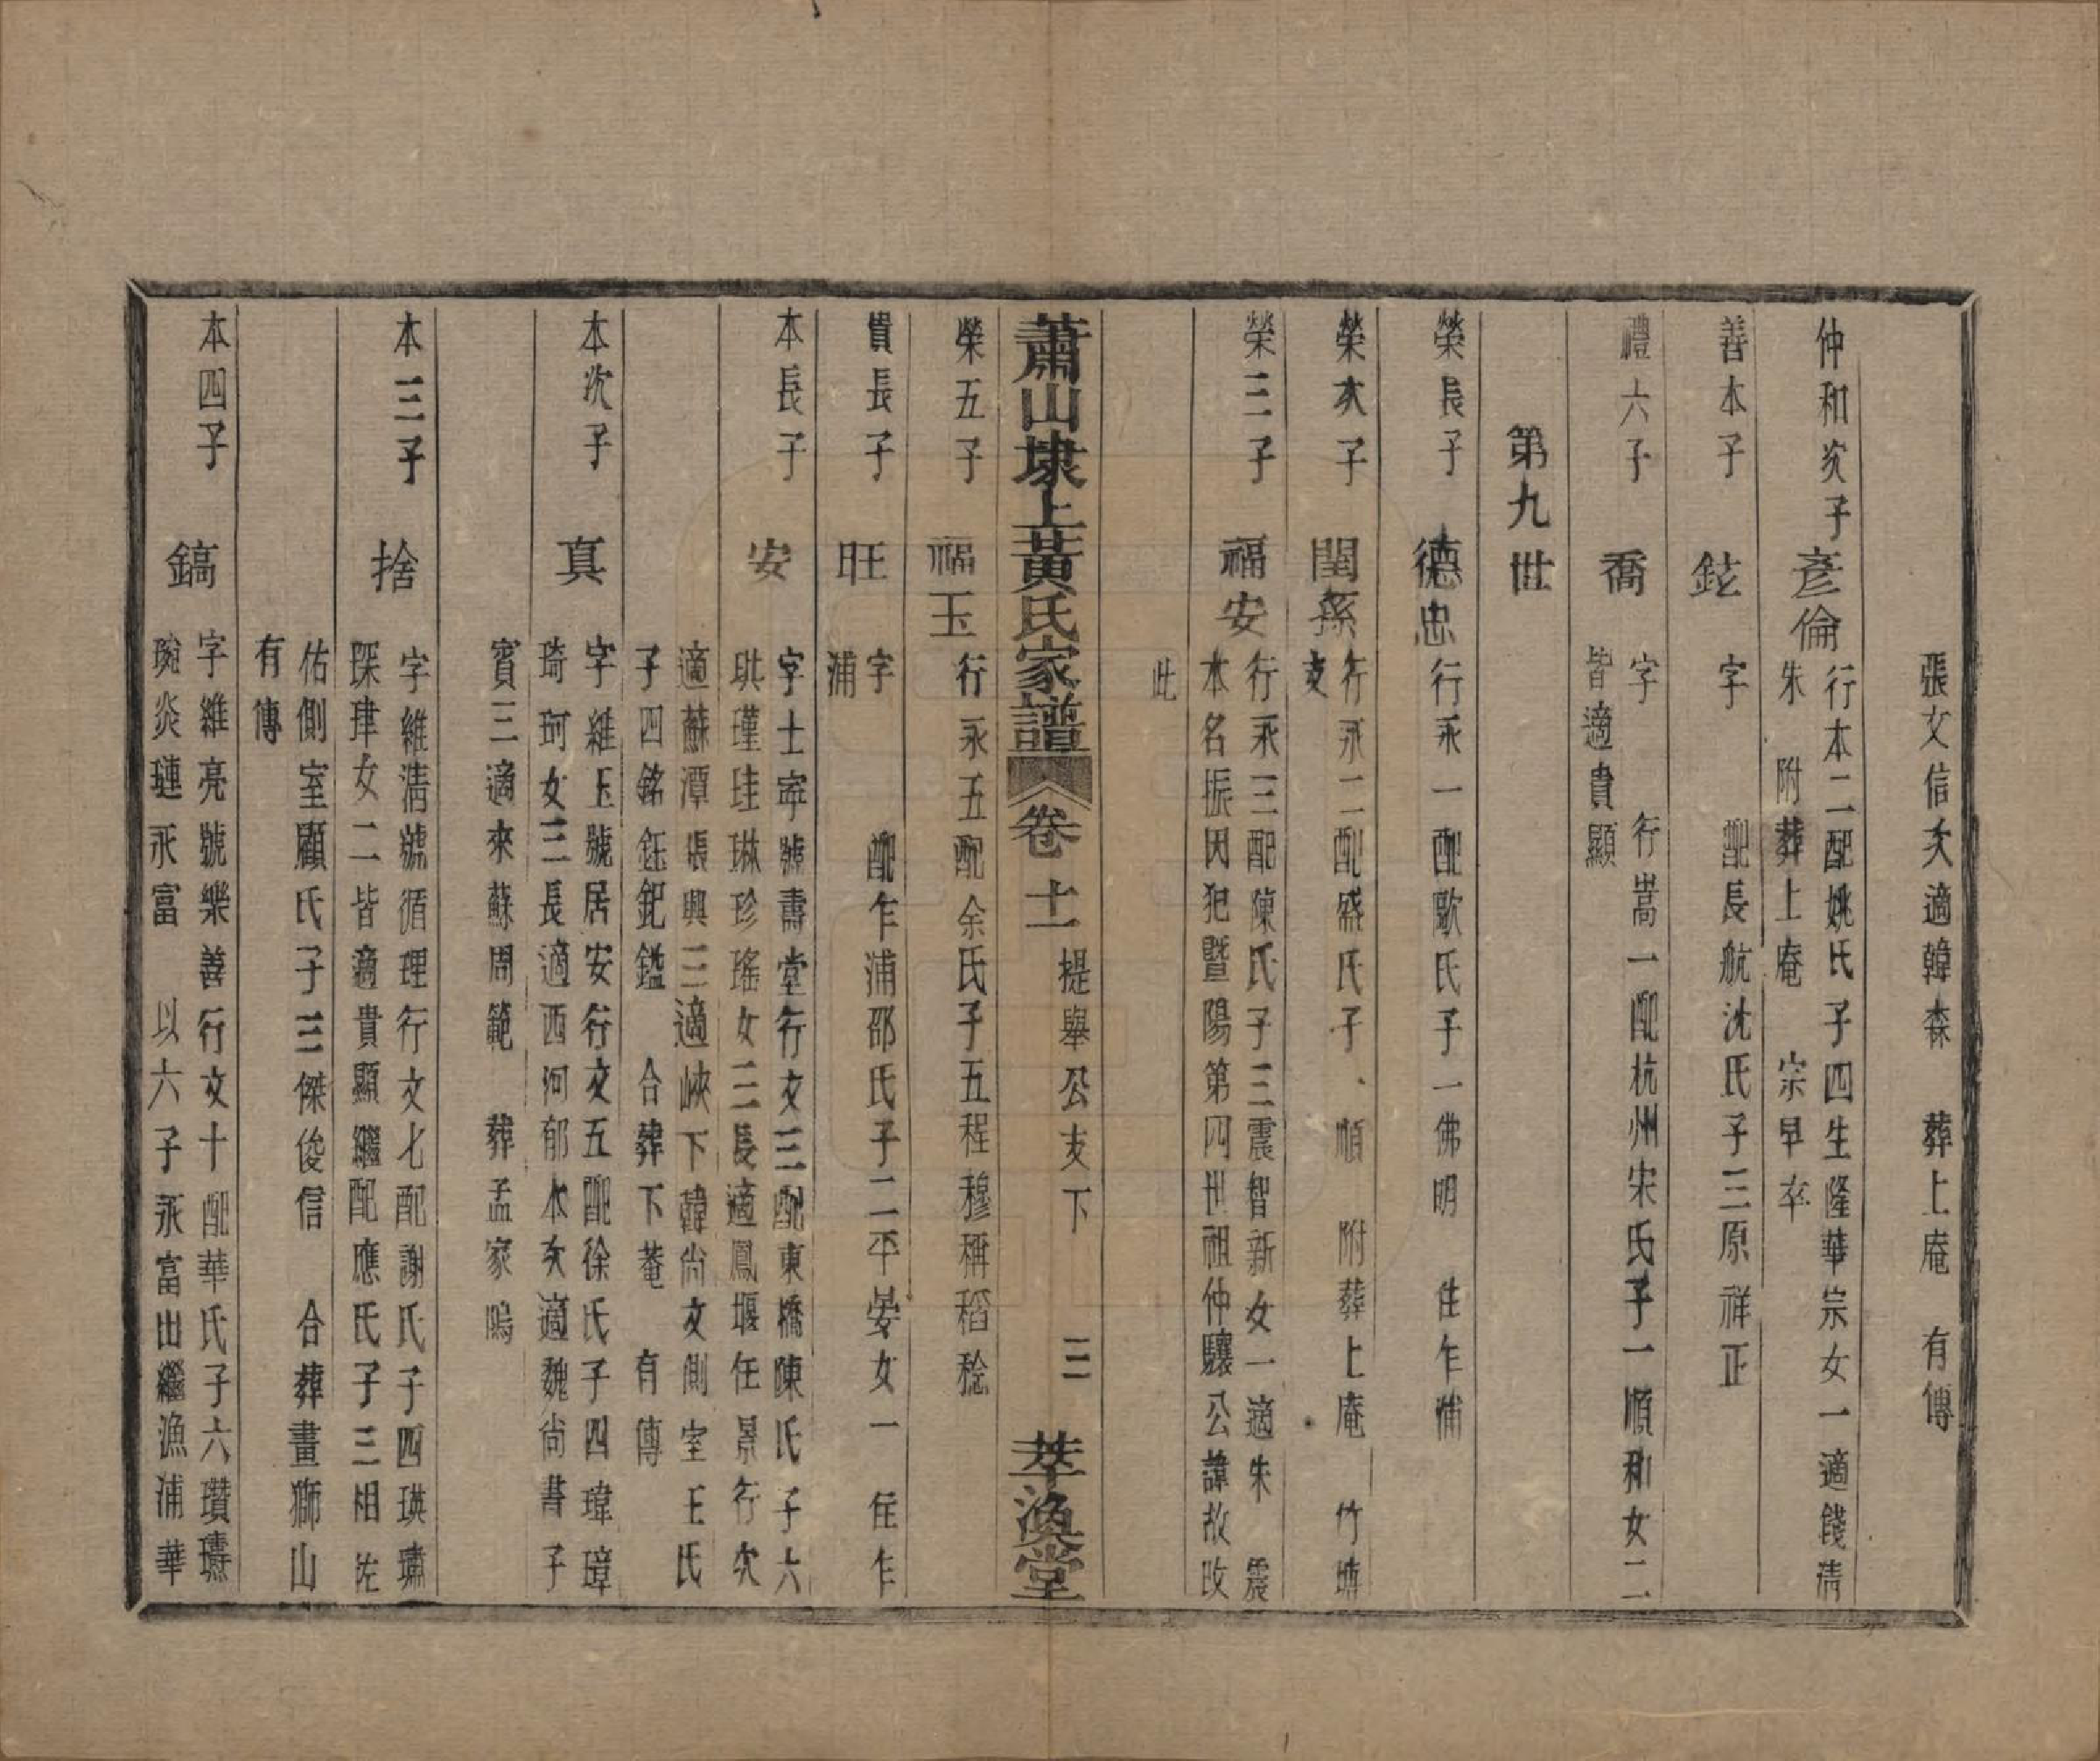 張文信次適韓森　葬上庵　有傳
仲和次子　彥倫　行本二配姚氏子四生隆華宗女一適錢清
朱　附葬上庵　宗早卒
善本子　鉉　字　配長航沈氏子三原祥正
禮六子　喬　字　行嵩一配杭州宋氏子一順和女二
皆適貴顯
第九世
榮長子　德忠　行永一配歐氏子一佛明　住乍浦
榮次子　閏孫　行永二配盛氏子、順　附葬上庵　竹塘
支
榮三子　福安　行永三配陳氏子三震智新女一適朱　震
本名振因犯暨陽第四世祖仲驤公諱故改
此
蕭山埭上黃氏家譜　卷十一　提舉公支下　三　萃渙堂
榮五子　福玉　行永五配余氏子五程穆稱稻稔
貴長子　旺　字　配乍浦邵氏子二平晏女一　住乍
浦
本長子　安　字士寧號壽堂行文三配東橋陳氏子六
珙瑾珪琳珍瑤女三長適鳳堰任景行次
適蘇潭張興三適峽下韓尚文側室王氏
子四銘鈺鈀鎰　合葬下菴　有傳
本次子　真　字維玉號居安行文五配徐氏子四瑋璋
琦珂女三長適西河郁本次適魏尚書子
賓三適來蘇周範　葬孟家塢
本三子　捨　字維清號循理行文七配謝氏子四瑛璛
琛珒女二皆適貴顯繼配應氏子三相佐
佑側室顧氏子三傑俊信　合葬畫獅山
有傳
本四子　鎬　字維亮號樂善行文十配華氏子六瓚璹
琬炎璉永富　以六子永富出繼漁浦華